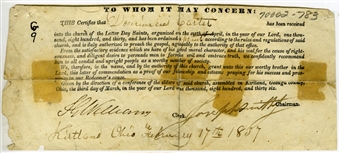 TO WHOM IT MAY CONCERN:
70002-783
THIS Certifies that Dominicus Carter has been received
into the church of the Latter Day Saints, organized on the sixth of April, in the year of our Lord, one thousand,
eight hundred, and thirty, and has been ordained according to the rules and regulations of said
church, and is duly authorized to preach the gospel, agreeably to the authority of that office.
From the satisfactory evidence which we have of his good moral character, and his zeal for the cause of righteousness,
and diligent desire to persuade men to forsake evil and embrace truth, we confidently recommend
him to all candid and upright people as a worthy member of society.
We, therefore, in the name, and by the authority of this church, grant unto this our worthy brother in the
Lord, this letter of commendation as a proof of our fellowship and esteem: praying for his success and prosperity
in our Redeemer's cause.
Given by the direction of a conference of the elders of said church, assembled in Kirtland, Geauga county,
Ohio, the third day of March, in the year of our Lord, one thousand, eight hundred, and thirty six.
F G Williams Clerk. Joseph Smith Jr Chairman.
Kirtland Ohio February 17th 1837